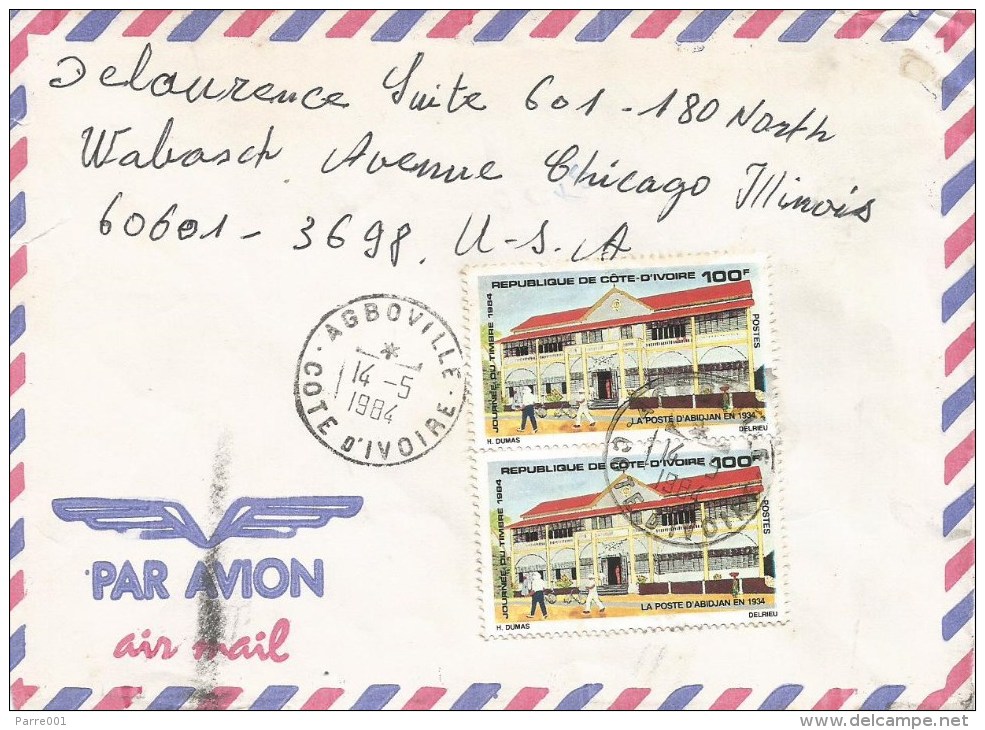 Delaurence Suite 601-180 North
Wabasch Avenue Chicago Illinois
60601-3698. U-S.A
REPUBLIQUE DE CÔTE-D'IVOIRE 100F
JOURNÉE DU TIMBRE 1984
POSTES
LA POSTE D'ABIDJAN EN 1934
H. DUMAS DELRIEU
AGBOVILLE
14-5
1984
COTE D'IVOIRE
REPUBLIQUE DE CÔTE-D'IVOIRE 100F
JOURNÉE DU TIMBRE 1984
POSTES
LA POSTE D'ABIDJAN EN 1934
H. DUMAS DELRIEU
14-5
1984
COTE D'IVOIRE
PAR AVION
air mail
Parre001
www.delcampe.net